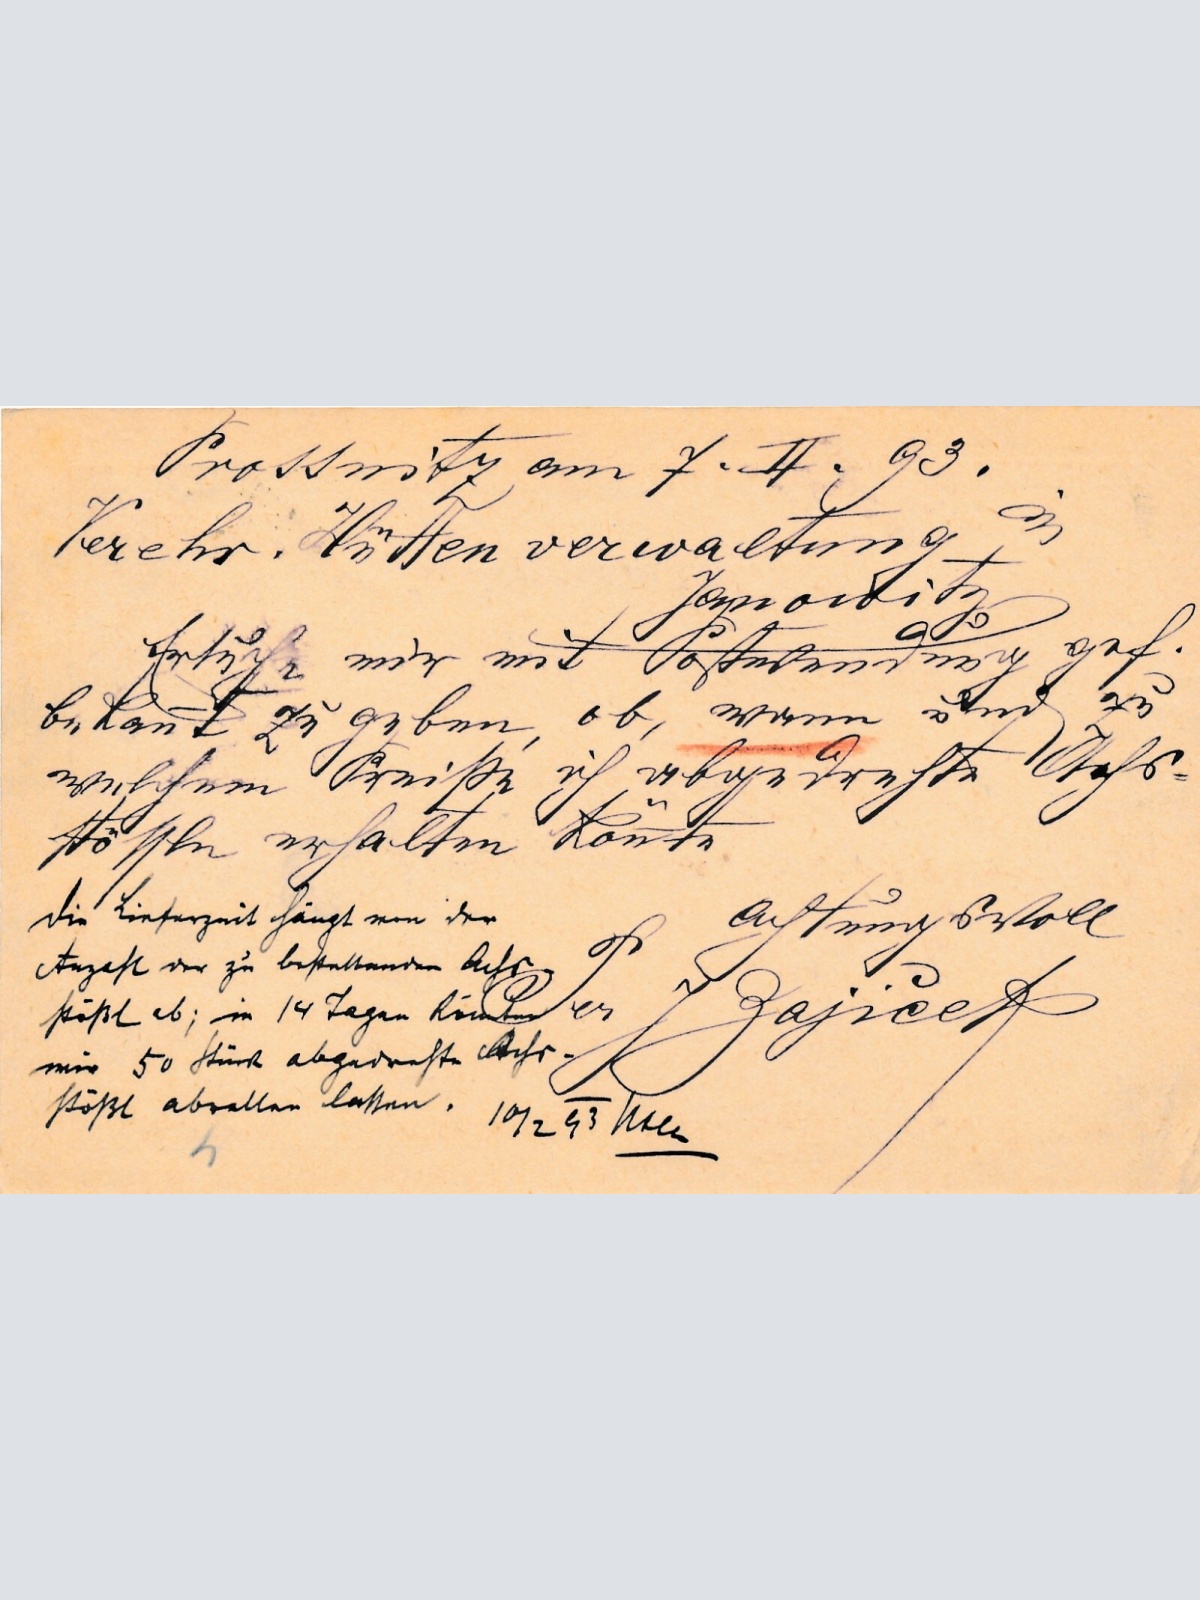 Prossnitz am 7. II. 93.
Verehr. Hütten verwaltung in
Janowitz
Ersuche mir mit Postwendung gef.
bekant zu geben, ob, wann und zu
welchem Preiße ich abgedrehte Achs-
stössln erhalten könte
Achtungsvoll
J Zajiček
Die Lieferzeit hängt von der
Anzahl der zu bestellenden Achs-
stößl ab; in 14 Tagen könnten
wir 50 Stück abgedrehte Achs-
stößl abrollen lassen.
10/2 93